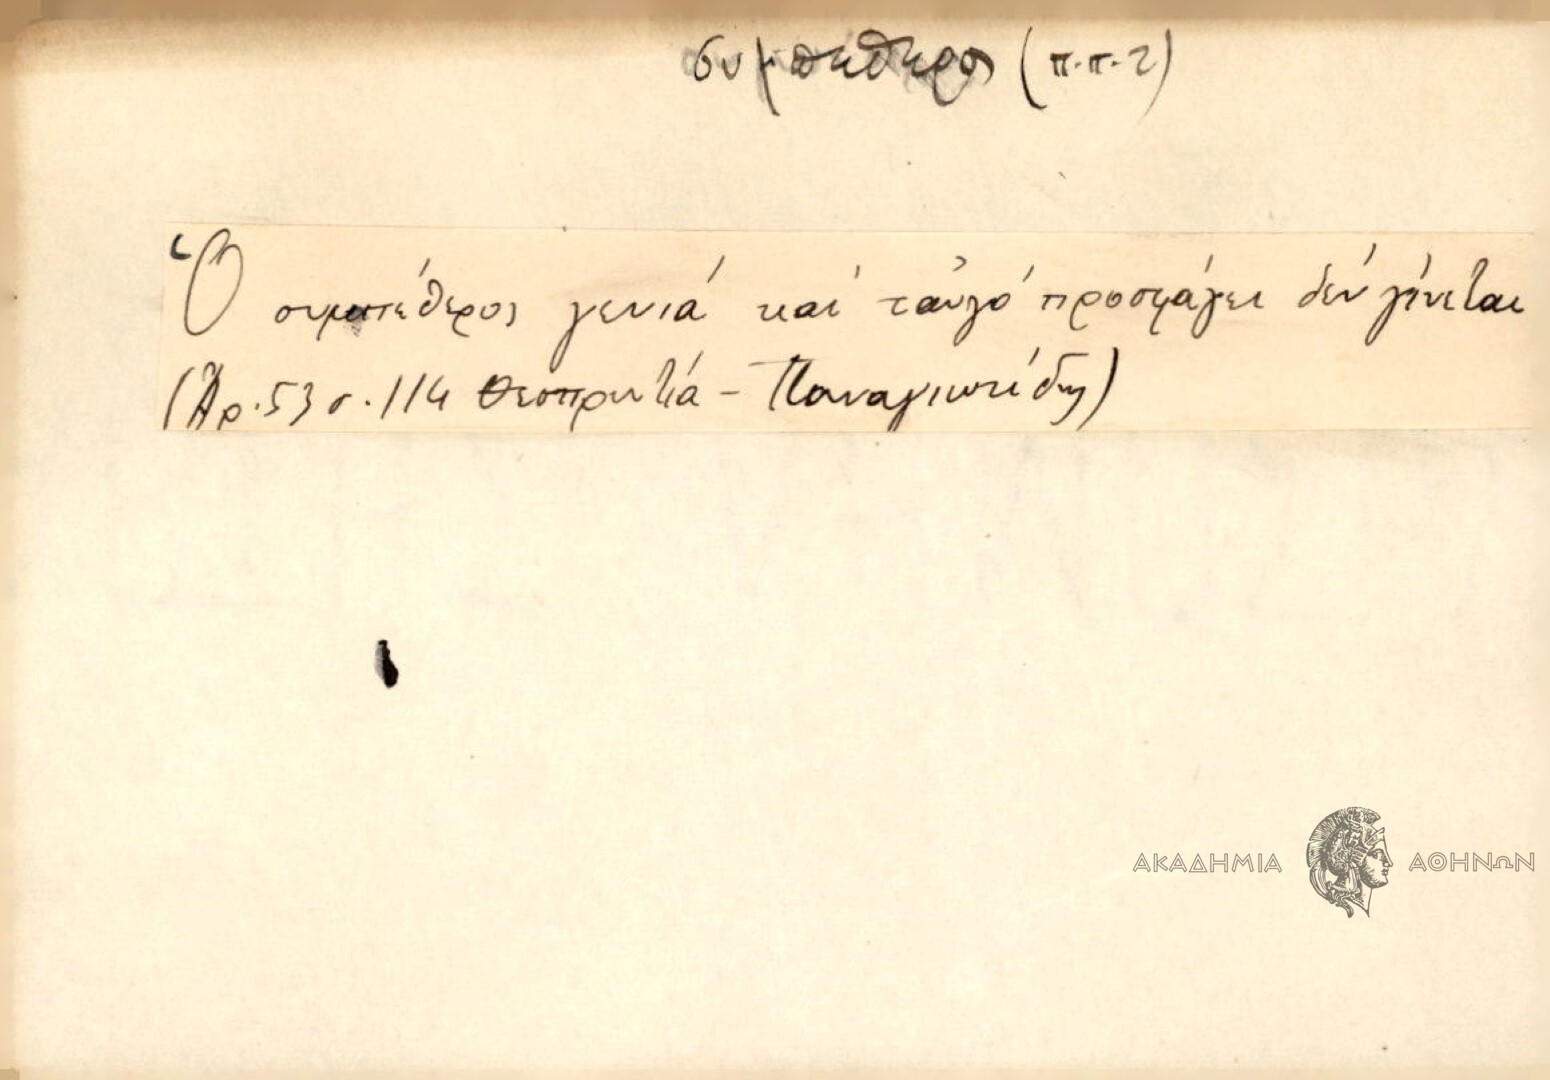 συμπεθερος (π.π.2)
Ὁ συμπέθερος γενιά καί ταὐγό προσφάγει δέν γίνεται
(Ἀρ. 53 σ. 114 Θεσπρωτιά - Παναγιωτίδης)
ΑΚΑΔΗΜΙΑ ΑΘΗΝΩΝ